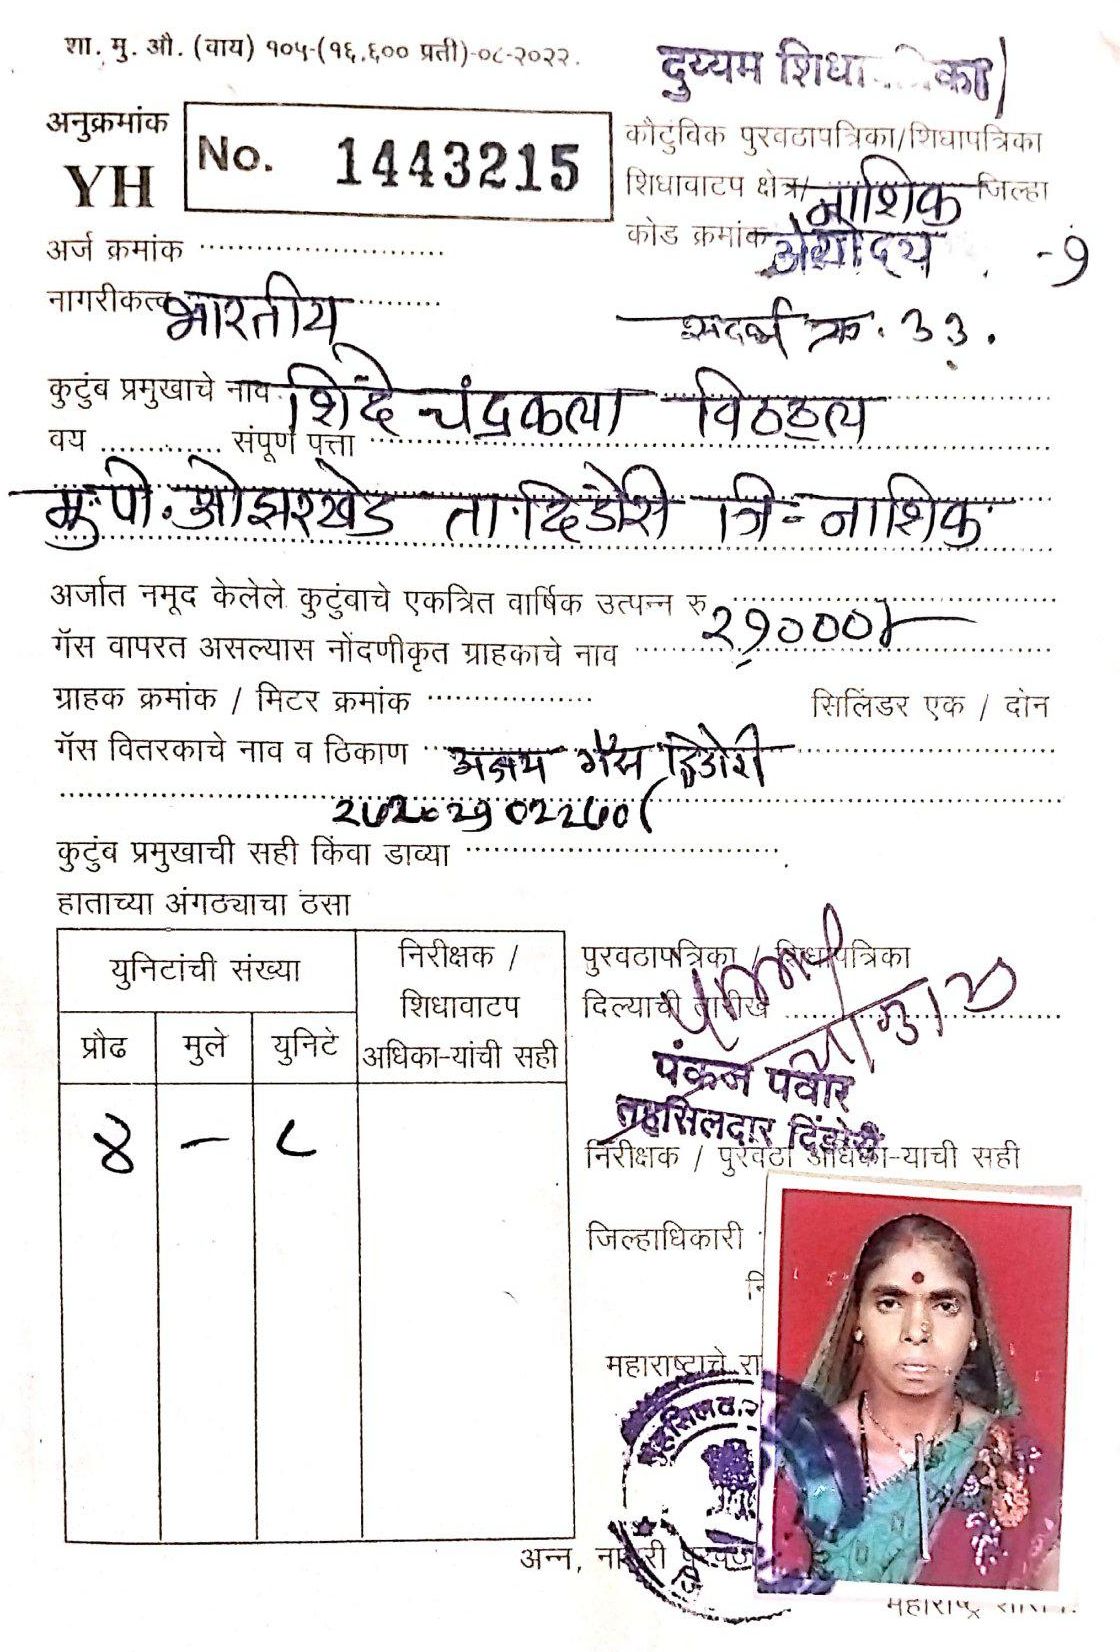 शा. मु. औ. (वाय) १०५-(१६,६०० प्रती)-०८-२०२२.
दुय्यम
अनुक्रमांक
YH
No. 1443215
कौटुंबिक पुरवठापत्रिका/शिधापत्रिका
शिधावाटप क्षेत्र/ नाशिक जिल्हा
कोड क्रमांक अंत्योदय -१
अर्ज क्रमांक
नागरीकत्व भारतीय
संदर्भ क्र. ३३.
कुटुंब प्रमुखाचे नाव शिंदे चंद्रकला विठठल
वय ............ संपूर्ण पत्ता
मु.पो. ओझरखेड ता. दिंडोरी जि- नाशिक
अर्जात नमूद केलेले कुटुंबाचे एकत्रित वार्षिक उत्पन्न रु २१०००/-
गॅस वापरत असल्यास नोंदणीकृत ग्राहकाचे नाव
ग्राहक क्रमांक / मिटर क्रमांक
सिलिंडर एक / दोन
गॅस वितरकाचे नाव व ठिकाण अक्षय गॅस दिंडोरी
कुटुंब प्रमुखाची सही किंवा डाव्या
हाताच्या अंगठ्याचा ठसा
युनिटांची संख्या
निरीक्षक /
शिधावाटप
अधिका-यांची सही
प्रौढ मुले युनिटे
४ – ८
पुरवठापत्रिका / शिधापत्रिका
दिल्याची तारीख
पंकज पवार
तहसिलदार दिंडोरी
निरीक्षक / पुरवठा अधिका-याची सही
जिल्हाधिकारी
महाराष्ट्राचे
अन्न, नागरी पुरवठा
महाराष्ट्र शासन